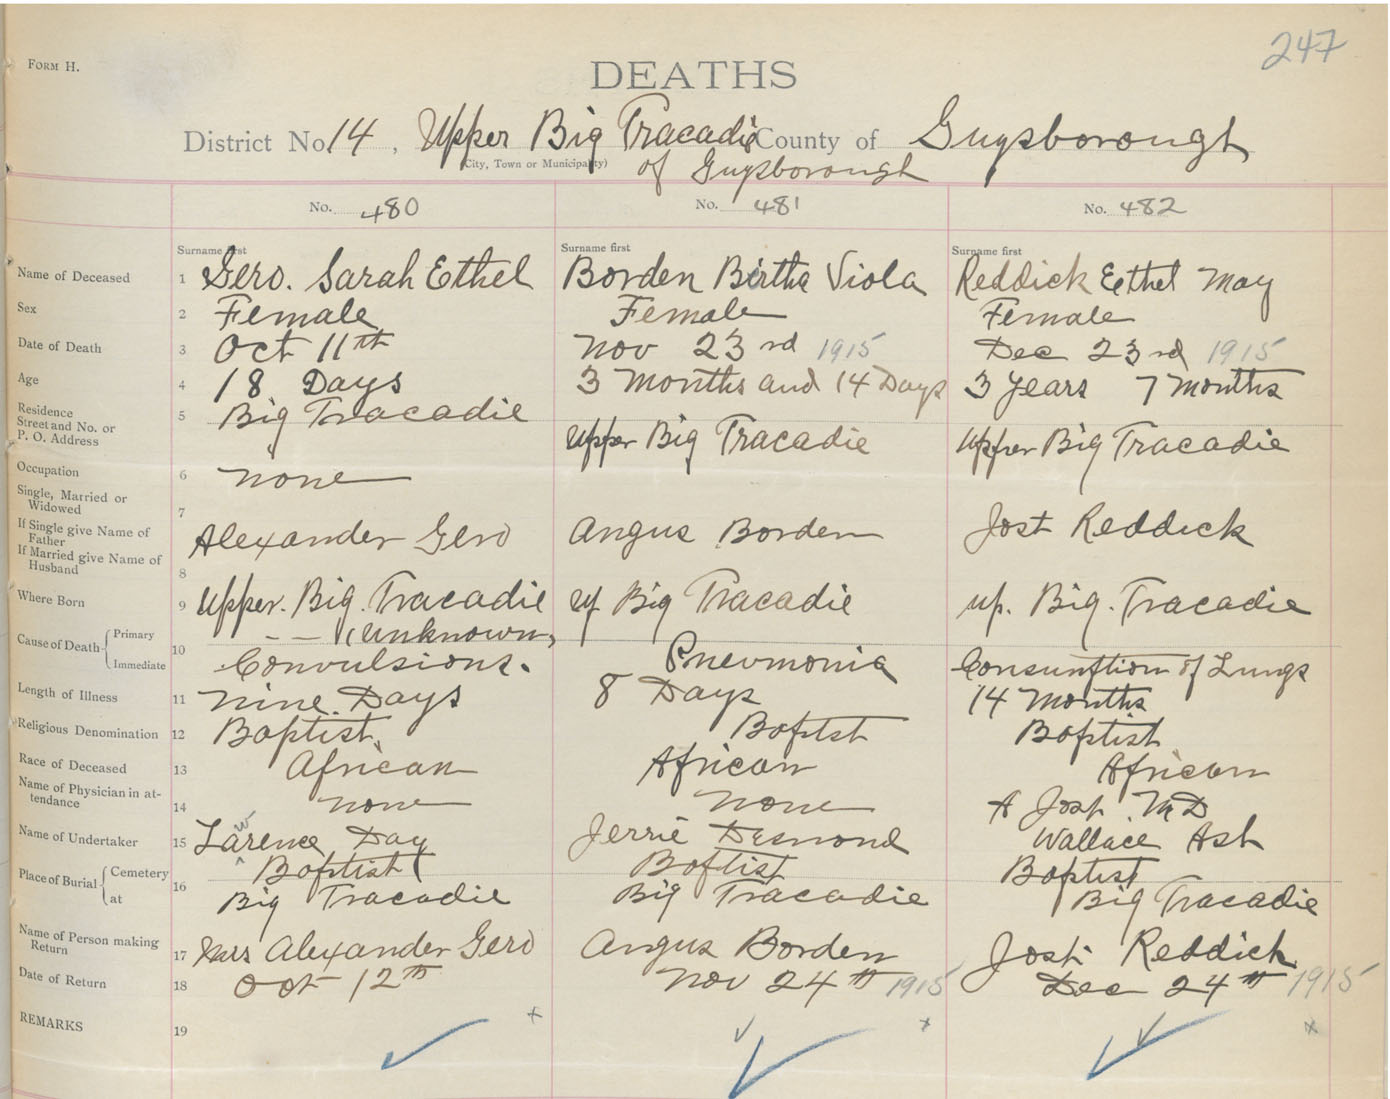 247
FORM H.
DEATHS
District No. 14, Upper Big Tracadie County of Guysborough
(City, Town or Municipality) of Guysborough
No. 480 No. 481 No. 482
Surname first Surname first Surname first
Name of Deceased 1 Gero. Sarah Ethel Borden Birtha Viola Reddick Ethel May
Sex 2 Female Female Female
Date of Death 3 Oct 11th Nov 23rd 1915 Dec 23rd 1915
Age 4 18 Days 3 months and 14 Days 3 years 7 months
Residence
Street and No. or
P. O. Address 5 Big Tracadie Upper Big Tracadie Upper Big Tracadie
Occupation 6 none
Single, Married or
Widowed 7
If Single give Name of
Father Alexander Gero Angus Borden Jost Reddick
If Married give Name of
Husband 8
Where Born 9 Upper. Big. Tracadie up Big Tracadie up. Big. Tracadie
Cause of Death { Primary 10 — — (unknown)
Immediate Convulsions. Pneumonia Consumftion of Lungs
Length of Illness 11 nine. Days 8 Days 14 months
Religious Denomination 12 Baptist Baptst Baptist
Race of Deceased 13 African African African
Name of Physician in at-
tendance 14 none none A Jost MD
Name of Undertaker 15 Lawrence Day Jerrie Desmond Wallace Ash
Place of Burial { Cemetery 16 Baptist Baptist Baptist
at Big Tracadie Big Tracadie Big Tracadie
Name of Person making
Return 17 Mrs Alexander Gero Angus Borden Jost Reddick
Date of Return 18 Oct 12th Nov 24th 1915 Dec 24th 1915
REMARKS 19 x x x